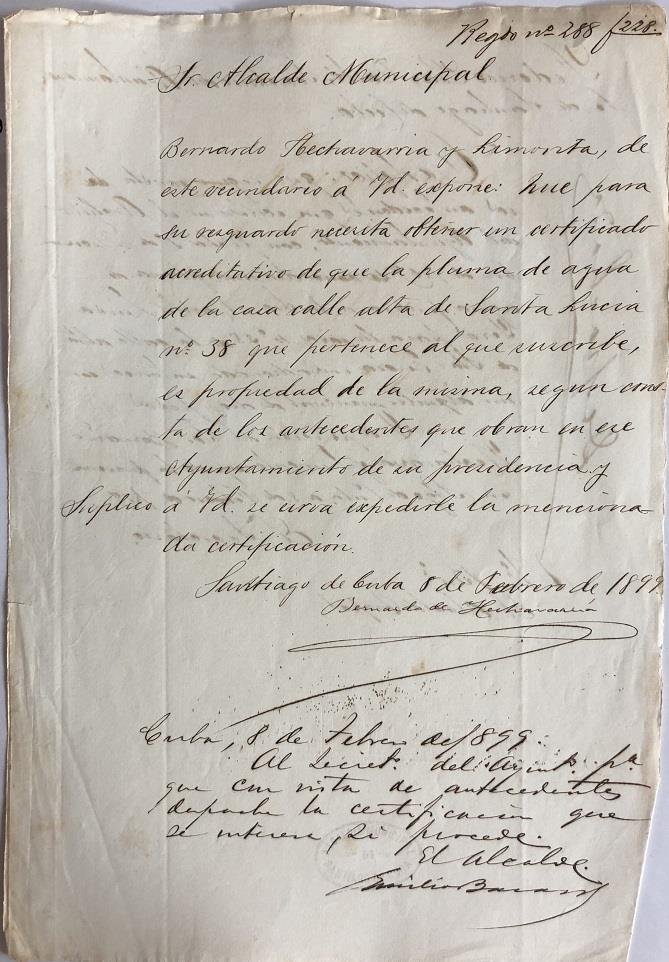 Regdo nº 288 f 228.
Sr. Alcalde Municipal
Bernardo Hechavarria y Limonta, de
este vecindario á Vd. expone: Que para
su resguardo necesita obtener un certificado
acreditativo de que la pluma de agua
de la casa calle alta de Santa Lucia
nº 38 que pertenece al que suscribe,
es propiedad de la misma, segun cons-
ta de los antecedentes que obran en ese
Ayuntamiento de su presidencia y
Suplico á Vd. se sirva expedirle la menciona-
da certificación.
Santiago de Cuba 8 de Febrero de 1899
Bernardo de Hechavarría
Cuba, 8 de Febrero de 1899.
Al Secret. del Ayunt. pª
que con vista de antecedentes
despache la certificación que
se interesa, si procede.
El Alcalde.
Emilio Bacardí